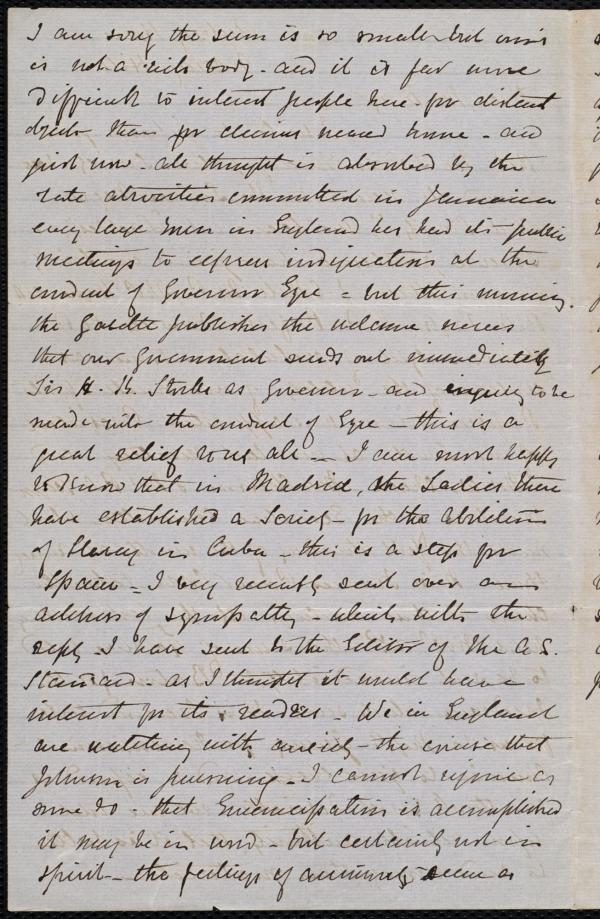 I am sorry the sum is so small but ours
is not a rich body - and it is far more
difficult to interest people here - for distant
objects than for claims nearer home - and
just now - all thought is absorbed by the
late atrocities committed in Jamaica
every large town in England has had its public
meetings to express indignation at the
conduct of Governor Eyre = but this morning
the Gazette publishes the welcome news
that our Government sends out immediately
Sir H. K. Storks as Governor - and inquiry to be
made into the conduct of Eyre - this is a
great relief to us all - I am most happy
to know that in Madrid, the Ladies there
have established a Society - for the Abolition
of Slavery in Cuba - this is a step for
Spain = I very recently sent over an
address of sympathy - which with the
reply I have sent to the Editor of the A.S.
Standard - as I thought it would have
interest for its readers - We in England
are watching with anxiety - the course that
Johnson is pursuing - I cannot rejoice as
some do - that Emancipation is accomplished
it may be in word - but certainly not in
spirit - the feelings of animosity seem as